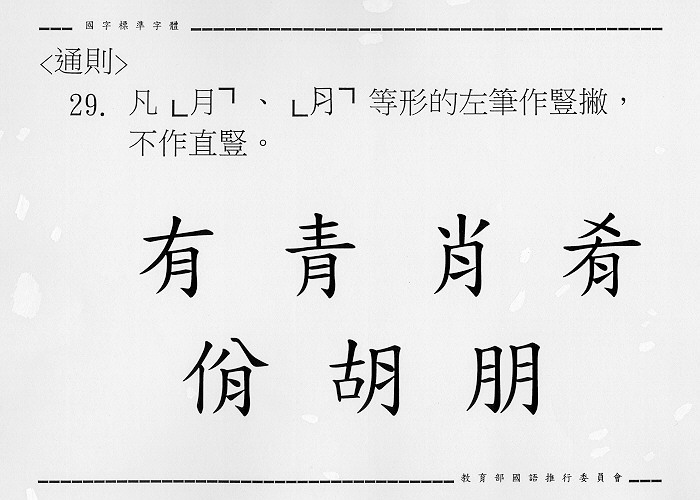 國字標準字體
<通則>
29. 凡「月」、「⺼」等形的左筆作豎撇，
不作直豎。
有 青 肖 肴
佾 胡 朋
教育部國語推行委員會